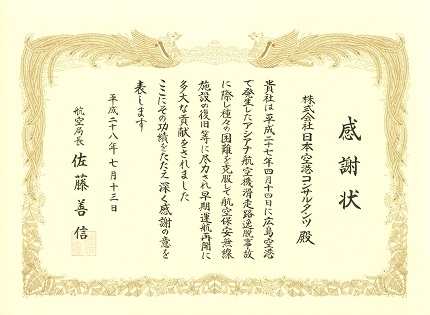 感謝状
株式会社日本空港コンサルタンツ 殿
貴社は平成二十七年四月十四日に広島空港
で発生したアシアナ航空機滑走路逸脱事故
に際し種々の困難を克服して航空保安無線
施設の復旧等に尽力され早期運航再開に
多大な貢献をされました
ここにその功績をたたえ深く感謝の意を
表します
平成二十八年七月十三日
航空局長 佐藤善信